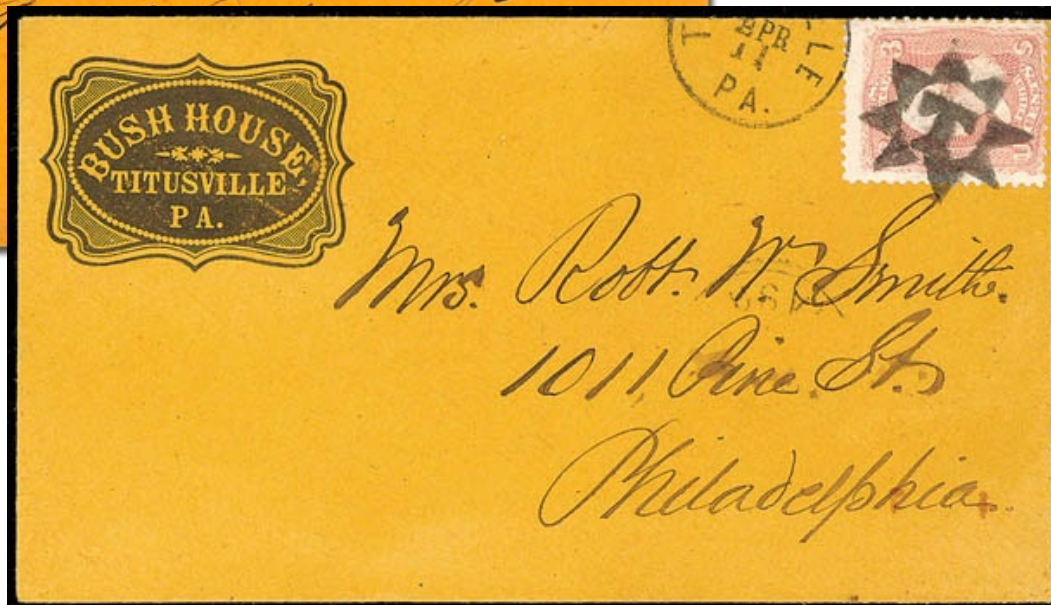 BUSH HOUSE,
TITUSVILLE
PA.
T LE
APR
11
PA.
3
Mrs. Robt. W. Smith.
1011 Pine St.
Philadelphia.